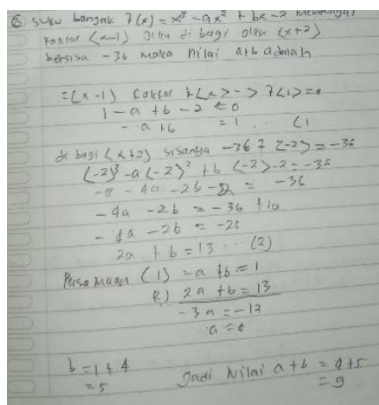 ⑥ suku banyak F(x) = x³ - ax² + bx - 2 mempunyai
Faktor (x-1) Jika di bagi oleh (x+2)
bersisa -36 maka nilai a+b adalah
= (x-1) Faktor F(x) -> F(1) = 0
1 - a + b - 2 = 0
- a + b = 1 ... (1
di bagi (x+2) sisanya -36 F(-2) = -36
(-2)³ - a(-2)² + b(-2) - 2 = -36
-8 - 4a - 2b - 2 = -36
- 4a - 2b = -36 + 10
- 4a - 2b = -26
2a + b = 13 ... (2)
Persamaan (1) -a + b = 1
2) 2a + b = 13
-3a = -12
a = 4
b = 1 + 4
= 5
Jadi Nilai a + b = 4 + 5
= 9